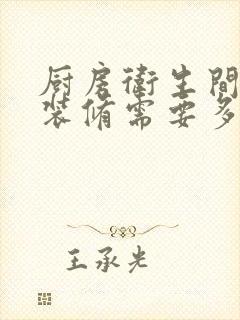 厨房衛生間
装脩需要多
王承光